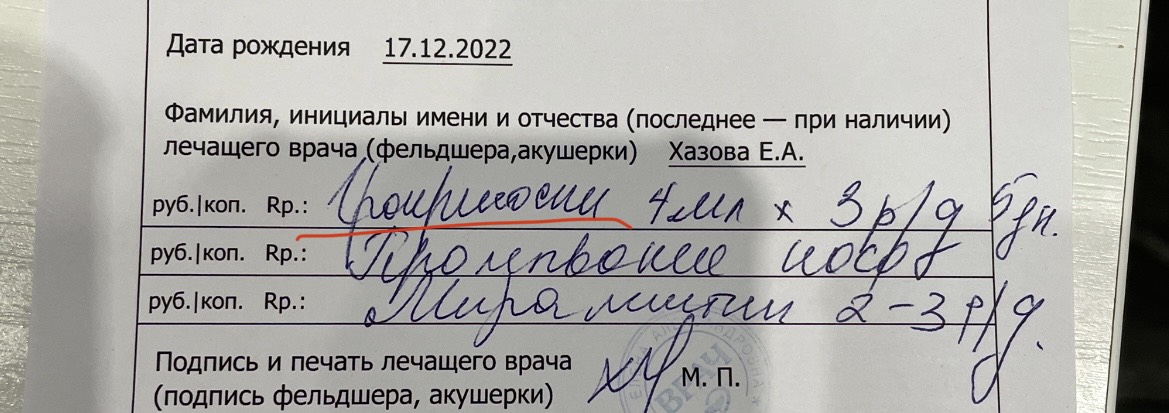 Дата рождения 17.12.2022
Фамилия, инициалы имени и отчества (последнее — при наличии)
лечащего врача (фельдшера,акушерки) Хазова Е.А.
руб.|коп. Rp.: Гроприносин 4 мл х 3 р/д 5 дн.
руб.|коп. Rp.: Промывание носа
руб.|коп. Rp.: Мирамистин 2-3 р/д.
Подпись и печать лечащего врача
(подпись фельдшера, акушерки) М. П.
ВРАЧ